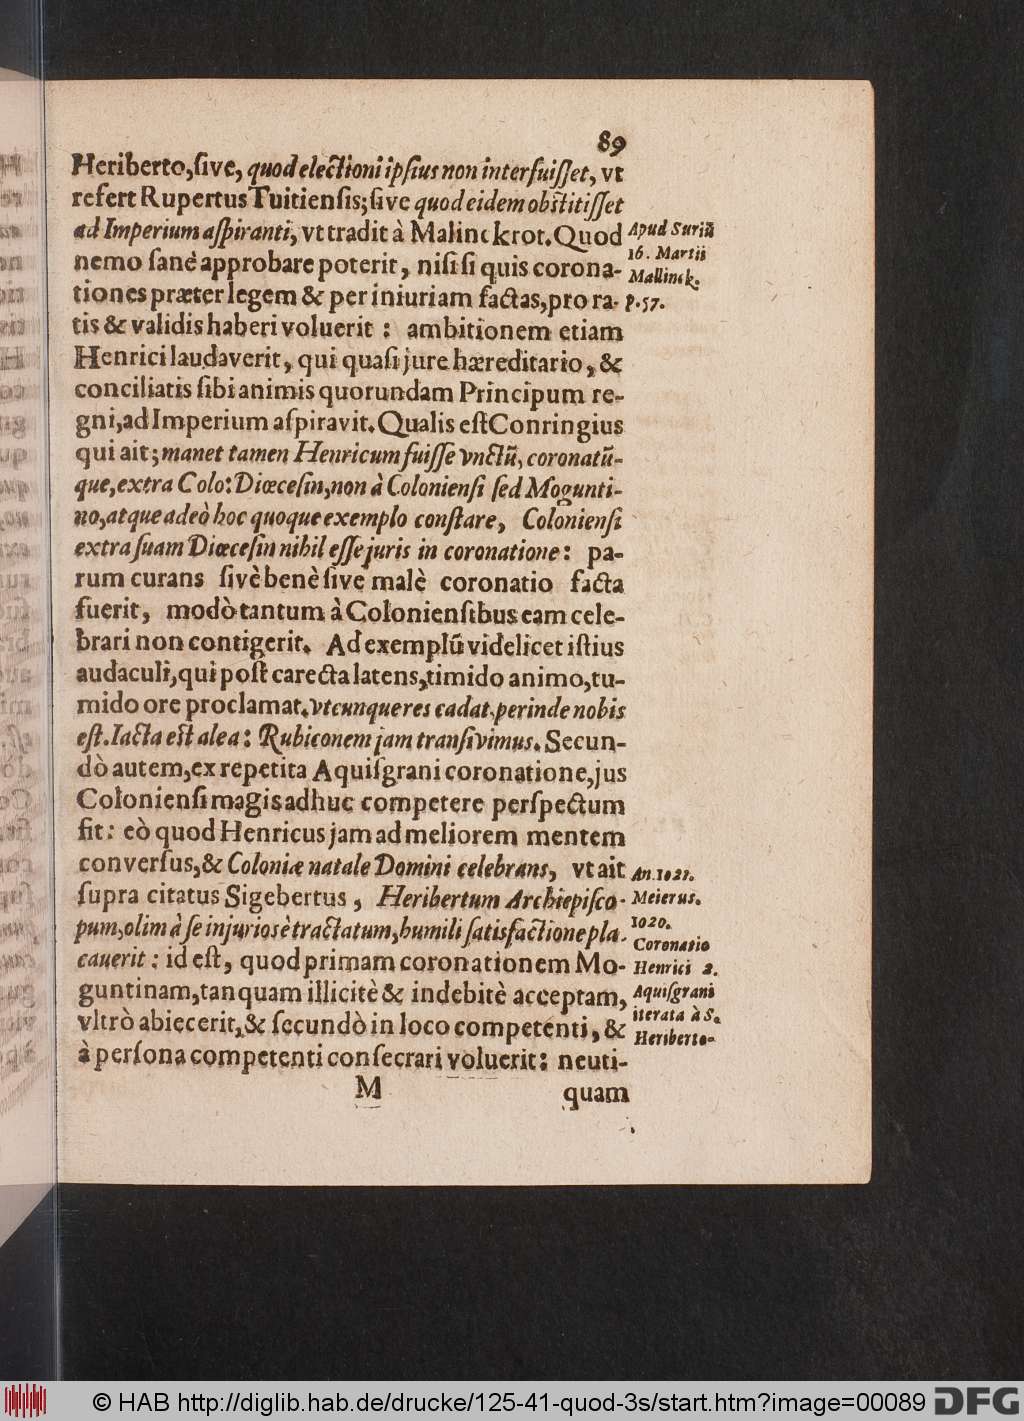 89
Heriberto,ſive, quod electioni ipſius non interfuiſſet, vt
refert Rupertus Tuitienſis; ſive quod eidem obſtitiſſet
ad Imperium aſpiranti, vt tradit à Malinckrot. Quod
nemo ſanè approbare poterit, niſi ſi quis corona-
tiones præter legem & per iniuriam factas, pro ra-
tis & validis haberi voluerit : ambitionem etiam
Henrici laudaverit, qui quaſi jure hæreditario, &
conciliatis ſibi animis quorundam Principum re-
gni, ad Imperium aſpiravit. Qualis eſt Conringius
qui ait; manet tamen Henricum fuiſſe vnctū, coronatū-
que, extra Colo: Diœceſin, non à Colonienſi ſed Mogunti-
no, atque adeò hoc quoque exemplo conſtare, Colonienſi
extra ſuam Diœceſin nihil eſſe juris in coronatione: pa-
rum curans ſivè benè ſive malè coronatio facta
fuerit, modò tantum à Colonienſibus eam cele-
brari non contigerit. Ad exemplū videlicet iſtius
audaculi, qui poſt carecta latens, timido animo, tu-
mido ore proclamat. vtcunque res cadat, perinde nobis
eſt. Iacta eſt alea: Rubiconem jam tranſivimus. Secun-
dò autem, ex repetita Aquiſgrani coronatione, jus
Colonienſi magis adhuc competere perſpectum
fit: eò quod Henricus jam ad meliorem mentem
converſus, & Coloniæ natale Domini celebrans, vt ait
ſupra citatus Sigebertus, Heribertum Archiepiſco-
pum, olim à ſe injuriosè tractatum, humili ſatisfactione pla-
caverit : id eſt, quod primam coronationem Mo-
guntinam, tanquam illicitè & indebitè acceptam,
vltrò abiecerit, & ſecundò in loco competenti, &
à perſona competenti conſecrari voluerit: neuti-
M
quam
Apud Suriū
16. Martii
Mallinck.
p. 57.
An. 1021.
Meierus.
1020.
Coronatio
Henrici 2.
Aquiſgrani
iterata à S.
Heriberto-
© HAB http://diglib.hab.de/drucke/125-41-quod-3s/start.htm?image=00089
DFG